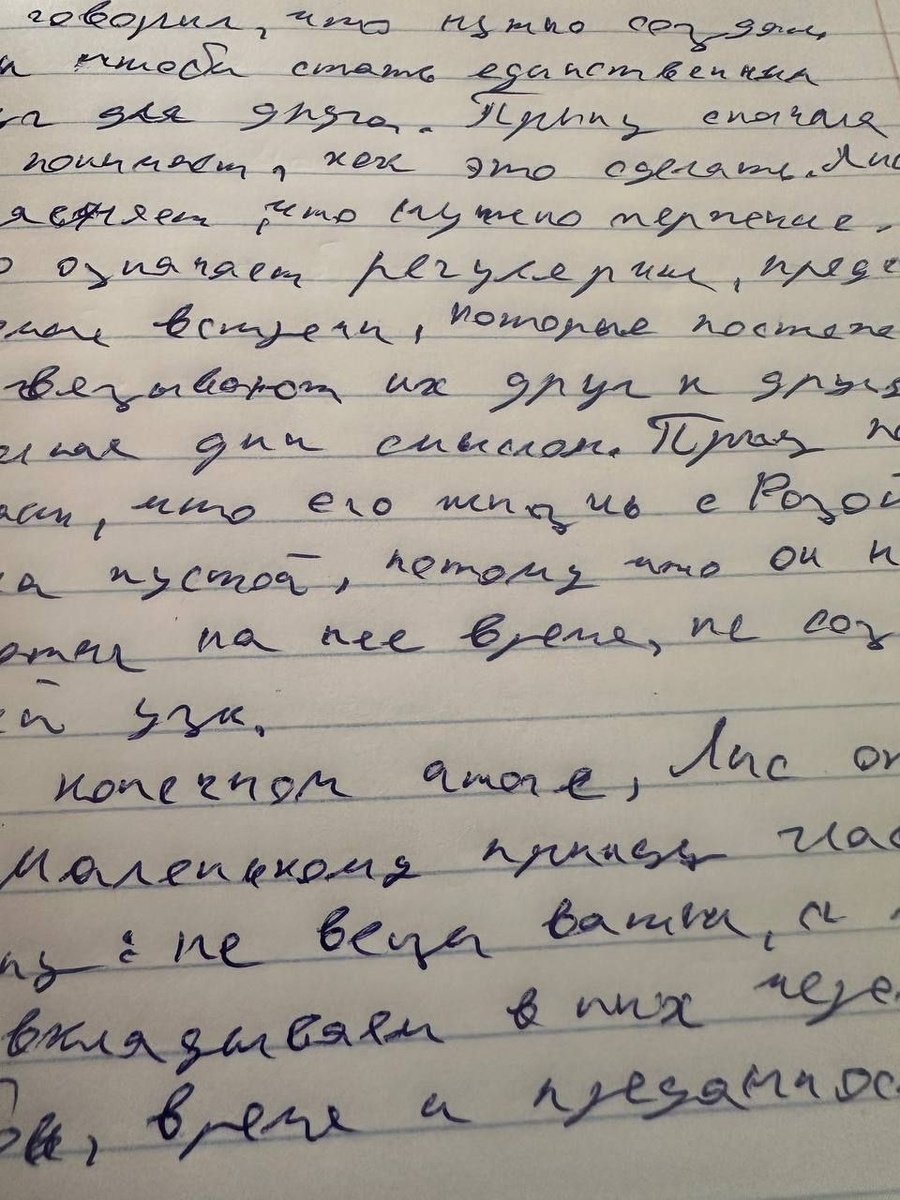 говорил, что нужно создам,
и чтоби стать единственнин
для друга. Прынц сначала
понимает, как это сделать. Лис
что нужно терпение.
о означает регулярнии, предс
встречи, которые постепе
вязывают их друг к другу
дни смыслом. Принц по
что его жизнь с Розой
ла пустой, потому что он н
на нее время, не соз
ей узы.
конечном итоге, Лис от
Маленькому принцу глас
ну: не вещи важни, а
вкладываем в них через
время и преданнос